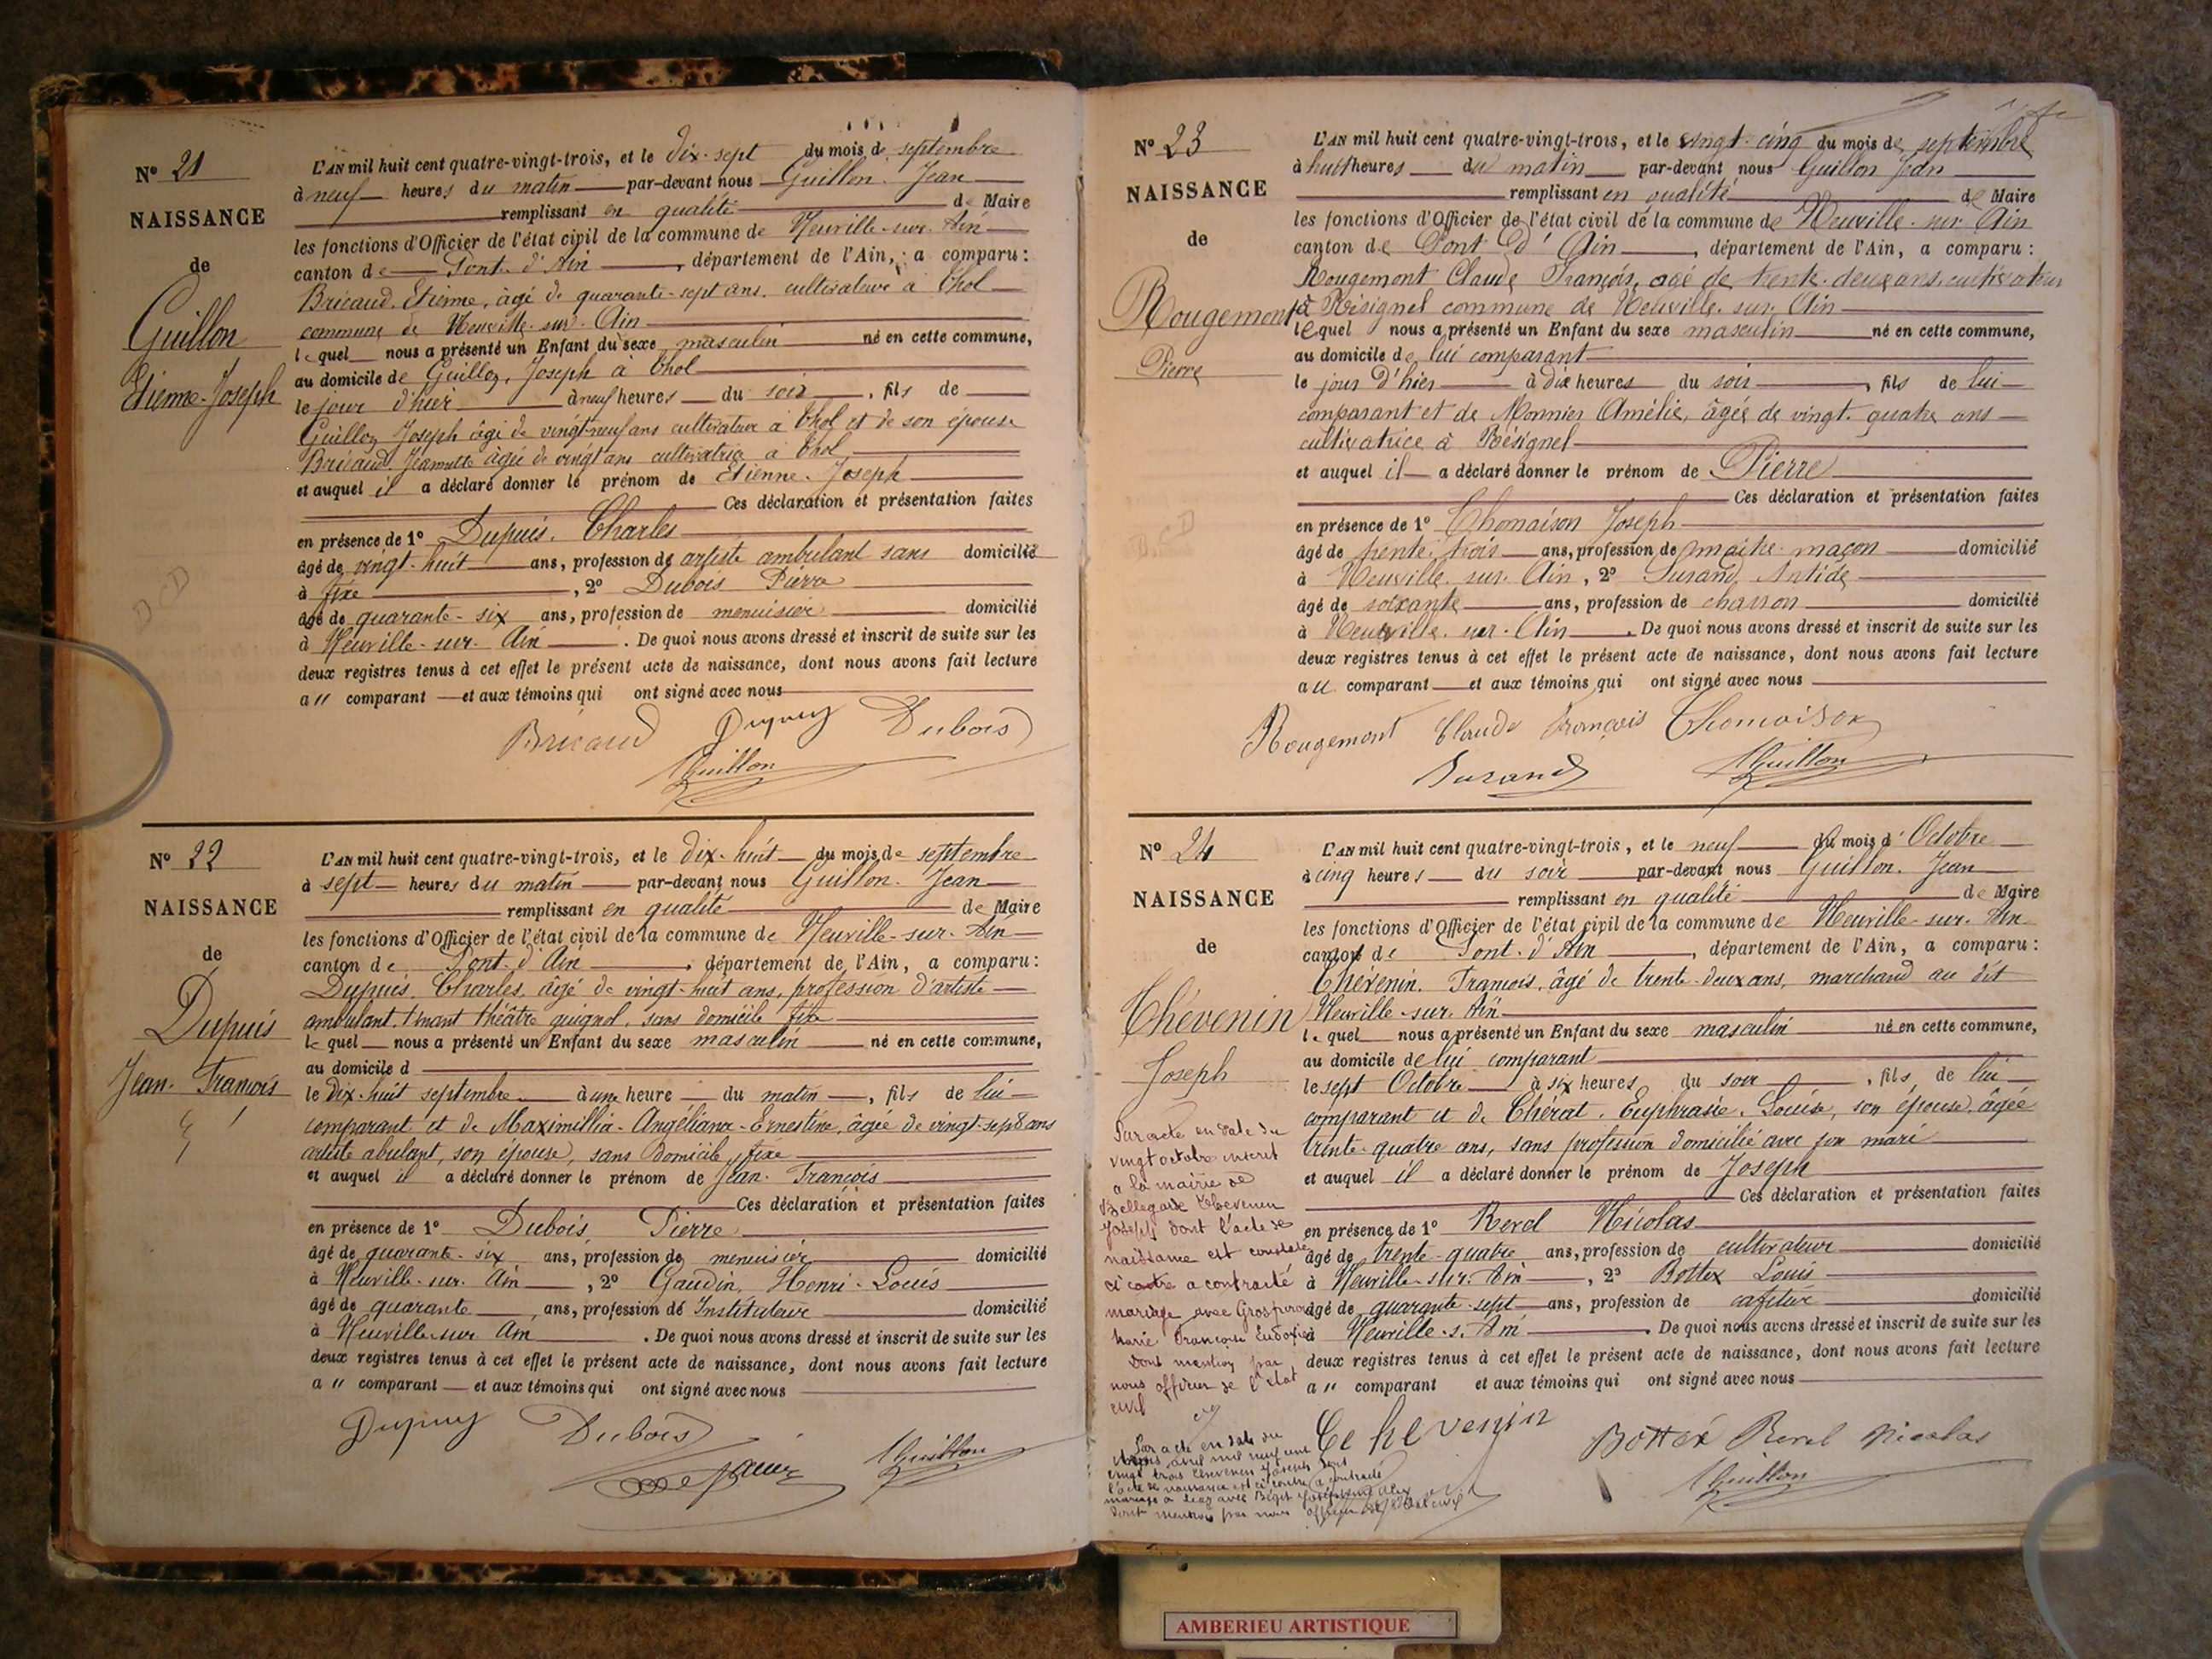 Nº 21
NAISSANCE
de
Guillon
Etienne-Joseph
L'AN mil huit cent quatre-vingt-trois, et le dix-sept du mois de septembre
à neuf heures du matin par-devant nous Guillon Jean
remplissant en qualité de Maire
les fonctions d'Officier de l'état civil de la commune de Neuville-sur-Ain
canton de Pont-d'Ain, département de l'Ain, a comparu :
Bricaud, Etienne, âgé de quarante-sept ans, cultivateur à Thol
commune de Neuville-sur-Ain
lequel nous a présenté un Enfant du sexe masculin né en cette commune,
au domicile de Guillon, Joseph à Thol
le jour d'hier à neuf heures du soir, fils de
Guillon Joseph âgé de vingt-neuf ans cultivateur à Thol et de son épouse
Bricaud Jeannette âgée de vingt ans cultivatrice à Thol
et auquel il a déclaré donner le prénom de Etienne-Joseph
Ces déclaration et présentation faites
en présence de 1º Dupuis, Charles
âgé de vingt-huit ans, profession de artiste ambulant sans domicilié
à fixe, 2º Dubois Pierre
âgé de quarante-six ans, profession de menuisier domicilié
à Neuville-sur-Ain. De quoi nous avons dressé et inscrit de suite sur les
deux registres tenus à cet effet le présent acte de naissance, dont nous avons fait lecture
a u comparant et aux témoins qui ont signé avec nous
Bricaud Dupuy Dubois
Guillon
Nº 22
NAISSANCE
de
Dupuis
Jean-François
L'AN mil huit cent quatre-vingt-trois, et le dix-huit du mois de septembre
à sept heures du matin par-devant nous Guillon Jean
remplissant en qualité de Maire
les fonctions d'Officier de l'état civil de la commune de Neuville-sur-Ain
canton de Pont-d'Ain, département de l'Ain, a comparu :
Dupuis, Charles, âgé de vingt-huit ans, profession d'artiste
ambulant, tenant théâtre guignol, sans domicile fixe
lequel nous a présenté un Enfant du sexe masculin né en cette commune,
au domicile d
le dix-huit septembre à une heure du matin, fils de lui
comparant et de Maximillia-Angéliana-Ernestine, âgée de vingt-sept ans
artiste abulant, son épouse, sans domicile fixe
et auquel il a déclaré donner le prénom de Jean-François
Ces déclaration et présentation faites
en présence de 1º Dubois Pierre
âgé de quarante-six ans, profession de menuisier domicilié
à Neuville-sur-Ain, 2º Gaudin, Henri-Louis
âgé de quarante ans, profession de Instituteur domicilié
à Neuville-sur Ain. De quoi nous avons dressé et inscrit de suite sur les
deux registres tenus à cet effet le présent acte de naissance, dont nous avons fait lecture
a u comparant et aux témoins qui ont signé avec nous
Dupuy Dubois
Guillon
Nº 23
NAISSANCE
de
Rougemont
Pierre
L'AN mil huit cent quatre-vingt-trois, et le vingt-cinq du mois de septembre
à huit heures du matin par-devant nous Guillon Jean
remplissant en qualité de Maire
les fonctions d'Officier de l'état civil de la commune de Neuville-sur-Ain
canton de Pont d'Ain, département de l'Ain, a comparu :
Rougemont Claude François, âgé de trente-deux ans, cultivateur
à Résignel commune de Neuville-sur-Ain
lequel nous a présenté un Enfant du sexe masculin né en cette commune,
au domicile de lui comparant
le jour d'hier à dix heures du soir, fils de lui
comparant et de Monnier Amélie, âgée de vingt-quatre ans
cultivatrice à Résignel
et auquel il a déclaré donner le prénom de Pierre
Ces déclaration et présentation faites
en présence de 1º Thomaison Joseph
âgé de trente-trois ans, profession de maître-maçon domicilié
à Neuville-sur-Ain, 2º Durand, Antide
âgé de soixante ans, profession de charron domicilié
à Neuville-sur-Ain. De quoi nous avons dressé et inscrit de suite sur les
deux registres tenus à cet effet le présent acte de naissance, dont nous avons fait lecture
au comparant et aux témoins qui ont signé avec nous
Rougemont Claude François Thomaison
Durand Guillon
Nº 24
NAISSANCE
de
Thévenin
Joseph
L'AN mil huit cent quatre-vingt-trois, et le neuf du mois d'Octobre
à cinq heures du soir par-devant nous Guillon Jean
remplissant en qualité de Maire
les fonctions d'Officier de l'état civil de la commune de Neuville-sur-Ain
canton de Pont-d'Ain, département de l'Ain, a comparu :
Thévenin, François, âgé de trente-deux ans, marchand au dit
Neuville-sur-Ain
lequel nous a présenté un Enfant du sexe masculin né en cette commune,
au domicile de lui comparant
le sept Octobre à six heures du soir, fils de lui
comparant et de Chérat, Euphrasie, Louise, son épouse, âgée
trente-quatre ans, sans profession domicilié avec son mari
et auquel il a déclaré donner le prénom de Joseph
Ces déclaration et présentation faites
en présence de 1º Revel Nicolas
âgé de trente-quatre ans, profession de cultivateur domicilié
à Neuville-sur-Ain, 2º Bottex Louis
âgé de quarante-sept ans, profession de cafetier domicilié
à Neuville-s-Ain. De quoi nous avons dressé et inscrit de suite sur les
deux registres tenus à cet effet le présent acte de naissance, dont nous avons fait lecture
a u comparant et aux témoins qui ont signé avec nous
Par acte en date du
vingt octobre inscrit
a la mairie de
Bellegarde Thevenin
Joseph dont l'acte de
naissance est constaté
ci contre a contracté
mariage avec
Marie Françoise Eudoxie
dont mention par
nous officier de l'état
civil
Par acte en date du
avril mil neuf cent
vingt trois Thevenin Joseph dont
l'acte de naissance est ci contre a contracté
mariage a avec
dont mention par nous officier de l'état civil
Thevenin Bottex Revel Nicolas
Guillon
AMBERIEU ARTISTIQUE